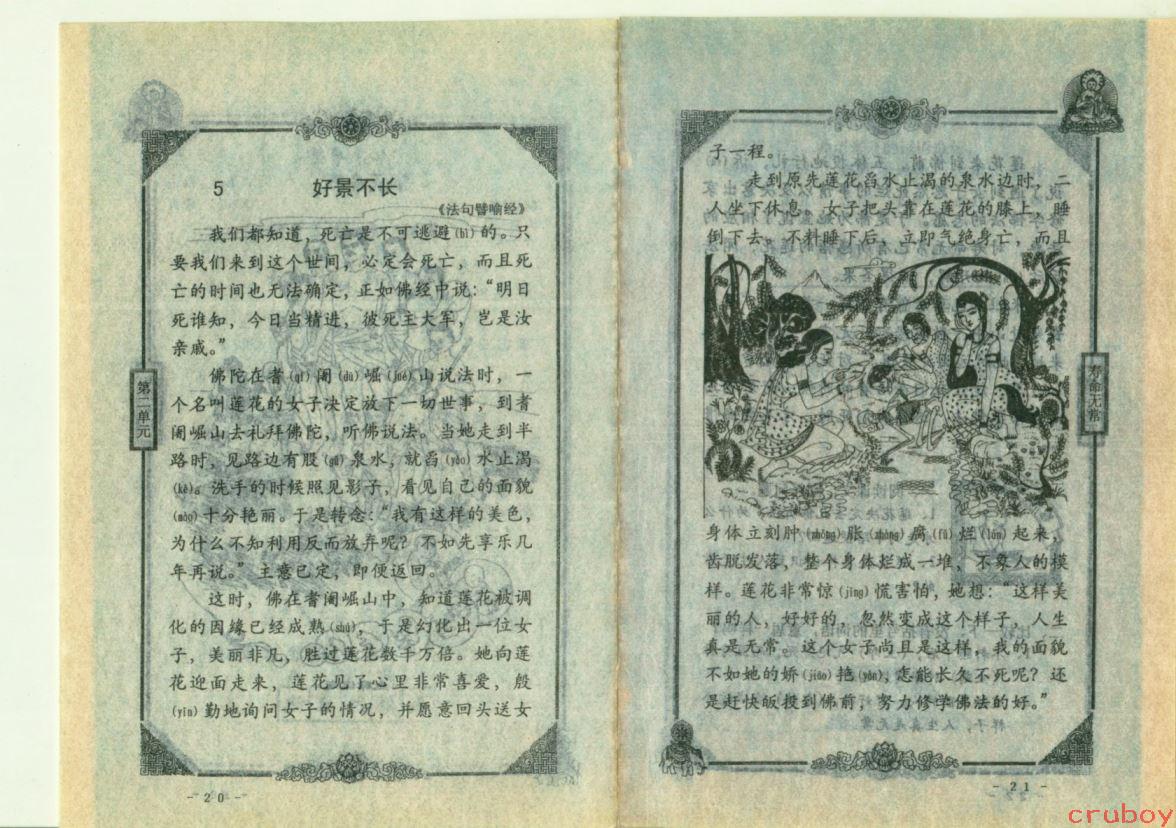 5 好景不长
《法句譬喻经》
我们都知道，死亡是不可逃避(bì)的。只
要我们来到这个世间，必定会死亡，而且死
亡的时间也无法确定，正如佛经中说：“明日
死谁知，今日当精进，彼死主大军，岂是汝
亲戚。”
佛陀在耆(qí)阇(dū)崛(jué)山说法时，一
个名叫莲花的女子决定放下一切世事，到耆
阇崛山去礼拜佛陀，听佛说法。当她走到半
路时，见路边有股(gǔ)泉水，就舀(yǎo)水止渴
(kě)。洗手的时候照见影子，看见自己的面貌
(mào)十分艳丽。于是转念：“我有这样的美色，
为什么不知利用反而放弃呢？不如先享乐几
年再说。”主意已定，即便返回。
这时，佛在耆阇崛山中，知道莲花被调
化的因缘已经成熟(shú)，于是幻化出一位女
子，美丽非凡，胜过莲花数千万倍。她向莲
花迎面走来，莲花见了心里非常喜爱，殷
(yīn)勤地询问女子的情况，并愿意回头送女
第二单元
-20-
子一程。
走到原先莲花舀水止渴的泉水边时，二
人坐下休息。女子把头靠在莲花的膝上，睡
倒下去。不料睡下后，立即气绝身亡，而且
身体立刻肿(zhǒng)胀(zhàng)腐(fǔ)烂(làn)起来，
齿脱发落，整个身体烂成一堆，不象人的模
样。莲花非常惊(jīng)慌害怕，她想：“这样美
丽的人，好好的，忽然变成这个样子，人生
真是无常。这个女子尚且是这样，我的面貌
不如她的娇(jiāo)艳(yàn)，怎能长久不死呢？还
是赶快皈投到佛前，努力修学佛法的好。”
寿命无常
-21-
cruboy